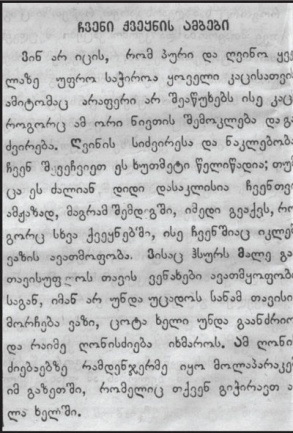 ჩვენი ქვეყნის ამბები
ვინ არ იცის, რომ პური და ღვინო ყვე
ლაზე უფრო საჭიროა ყოველი კაცისათვი
ამიტომაც არაფერი არ შეაწუხებს ისე კაც
როგორც ამ ორი ნივთის შემოკლება და გა
ძვირება. ღვინის სიძვირესა და ნაკლებობა
ჩვენ შევეჩვიეთ ეს ხუთმეტი წელიწადია; თუმ
ცა ეს ძალიან დიდი დასაკლისია ჩვენთვი
ამჟამად, მაგრამ შემდგში, იმედი გვაქვს, რო
გორც სხვა ქვეყნებში, ისე ჩვენშიაც იკლებ
ვაზის ავათმოფობა. ვისაც ჰსურს მალე გა
თავისუფლოს თავის ვენახები ავათმყოფობი
საგან, იმან არ უნდა უცადოს სანამ თავისი
მორჩება ვაზი, ცოტა ხელი უნდა გაანძრიო
და რაიმე ღონისძიება იხმაროს. ამ ღონი
ძიებაებზე რამდენჯერმე იყო მოლაპარაკებ
იმ გაზეთში, რომელიც თქვენ გიჭირავთ ა
ლა ხელში.